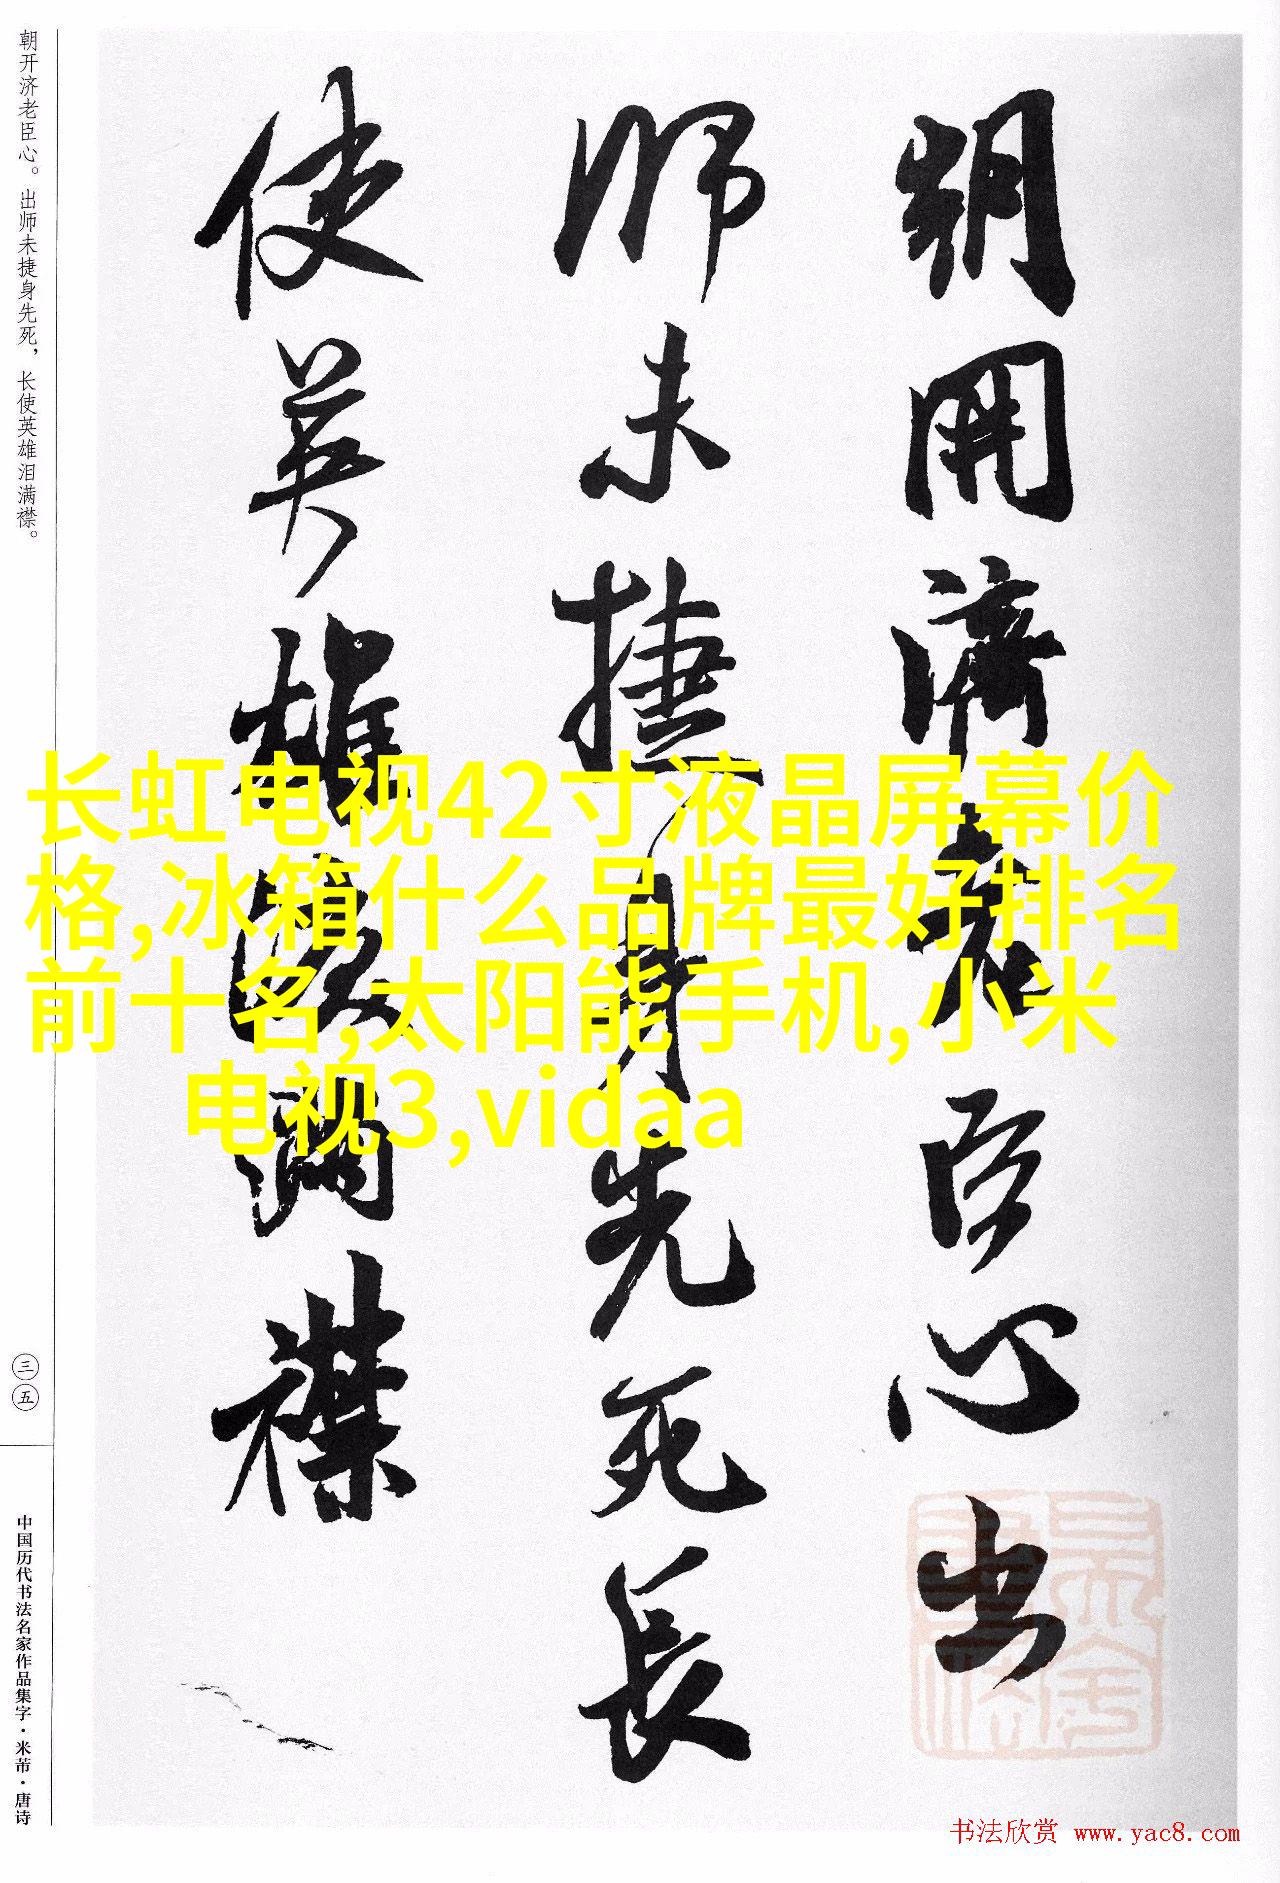 朝開濟老臣心出
師未捷身先死長
使英雄淚滿襟
朝开济老臣心。出师未捷身先死，长使英雄泪满襟。
三五
中国历代书法名家作品集字·米芾·唐诗
长虹电视42寸液晶屏幕价
格,冰箱什么品牌最好排名
前十名,太阳能手机,小米
电视3,vidaa
书法欣赏 www.yac8.com